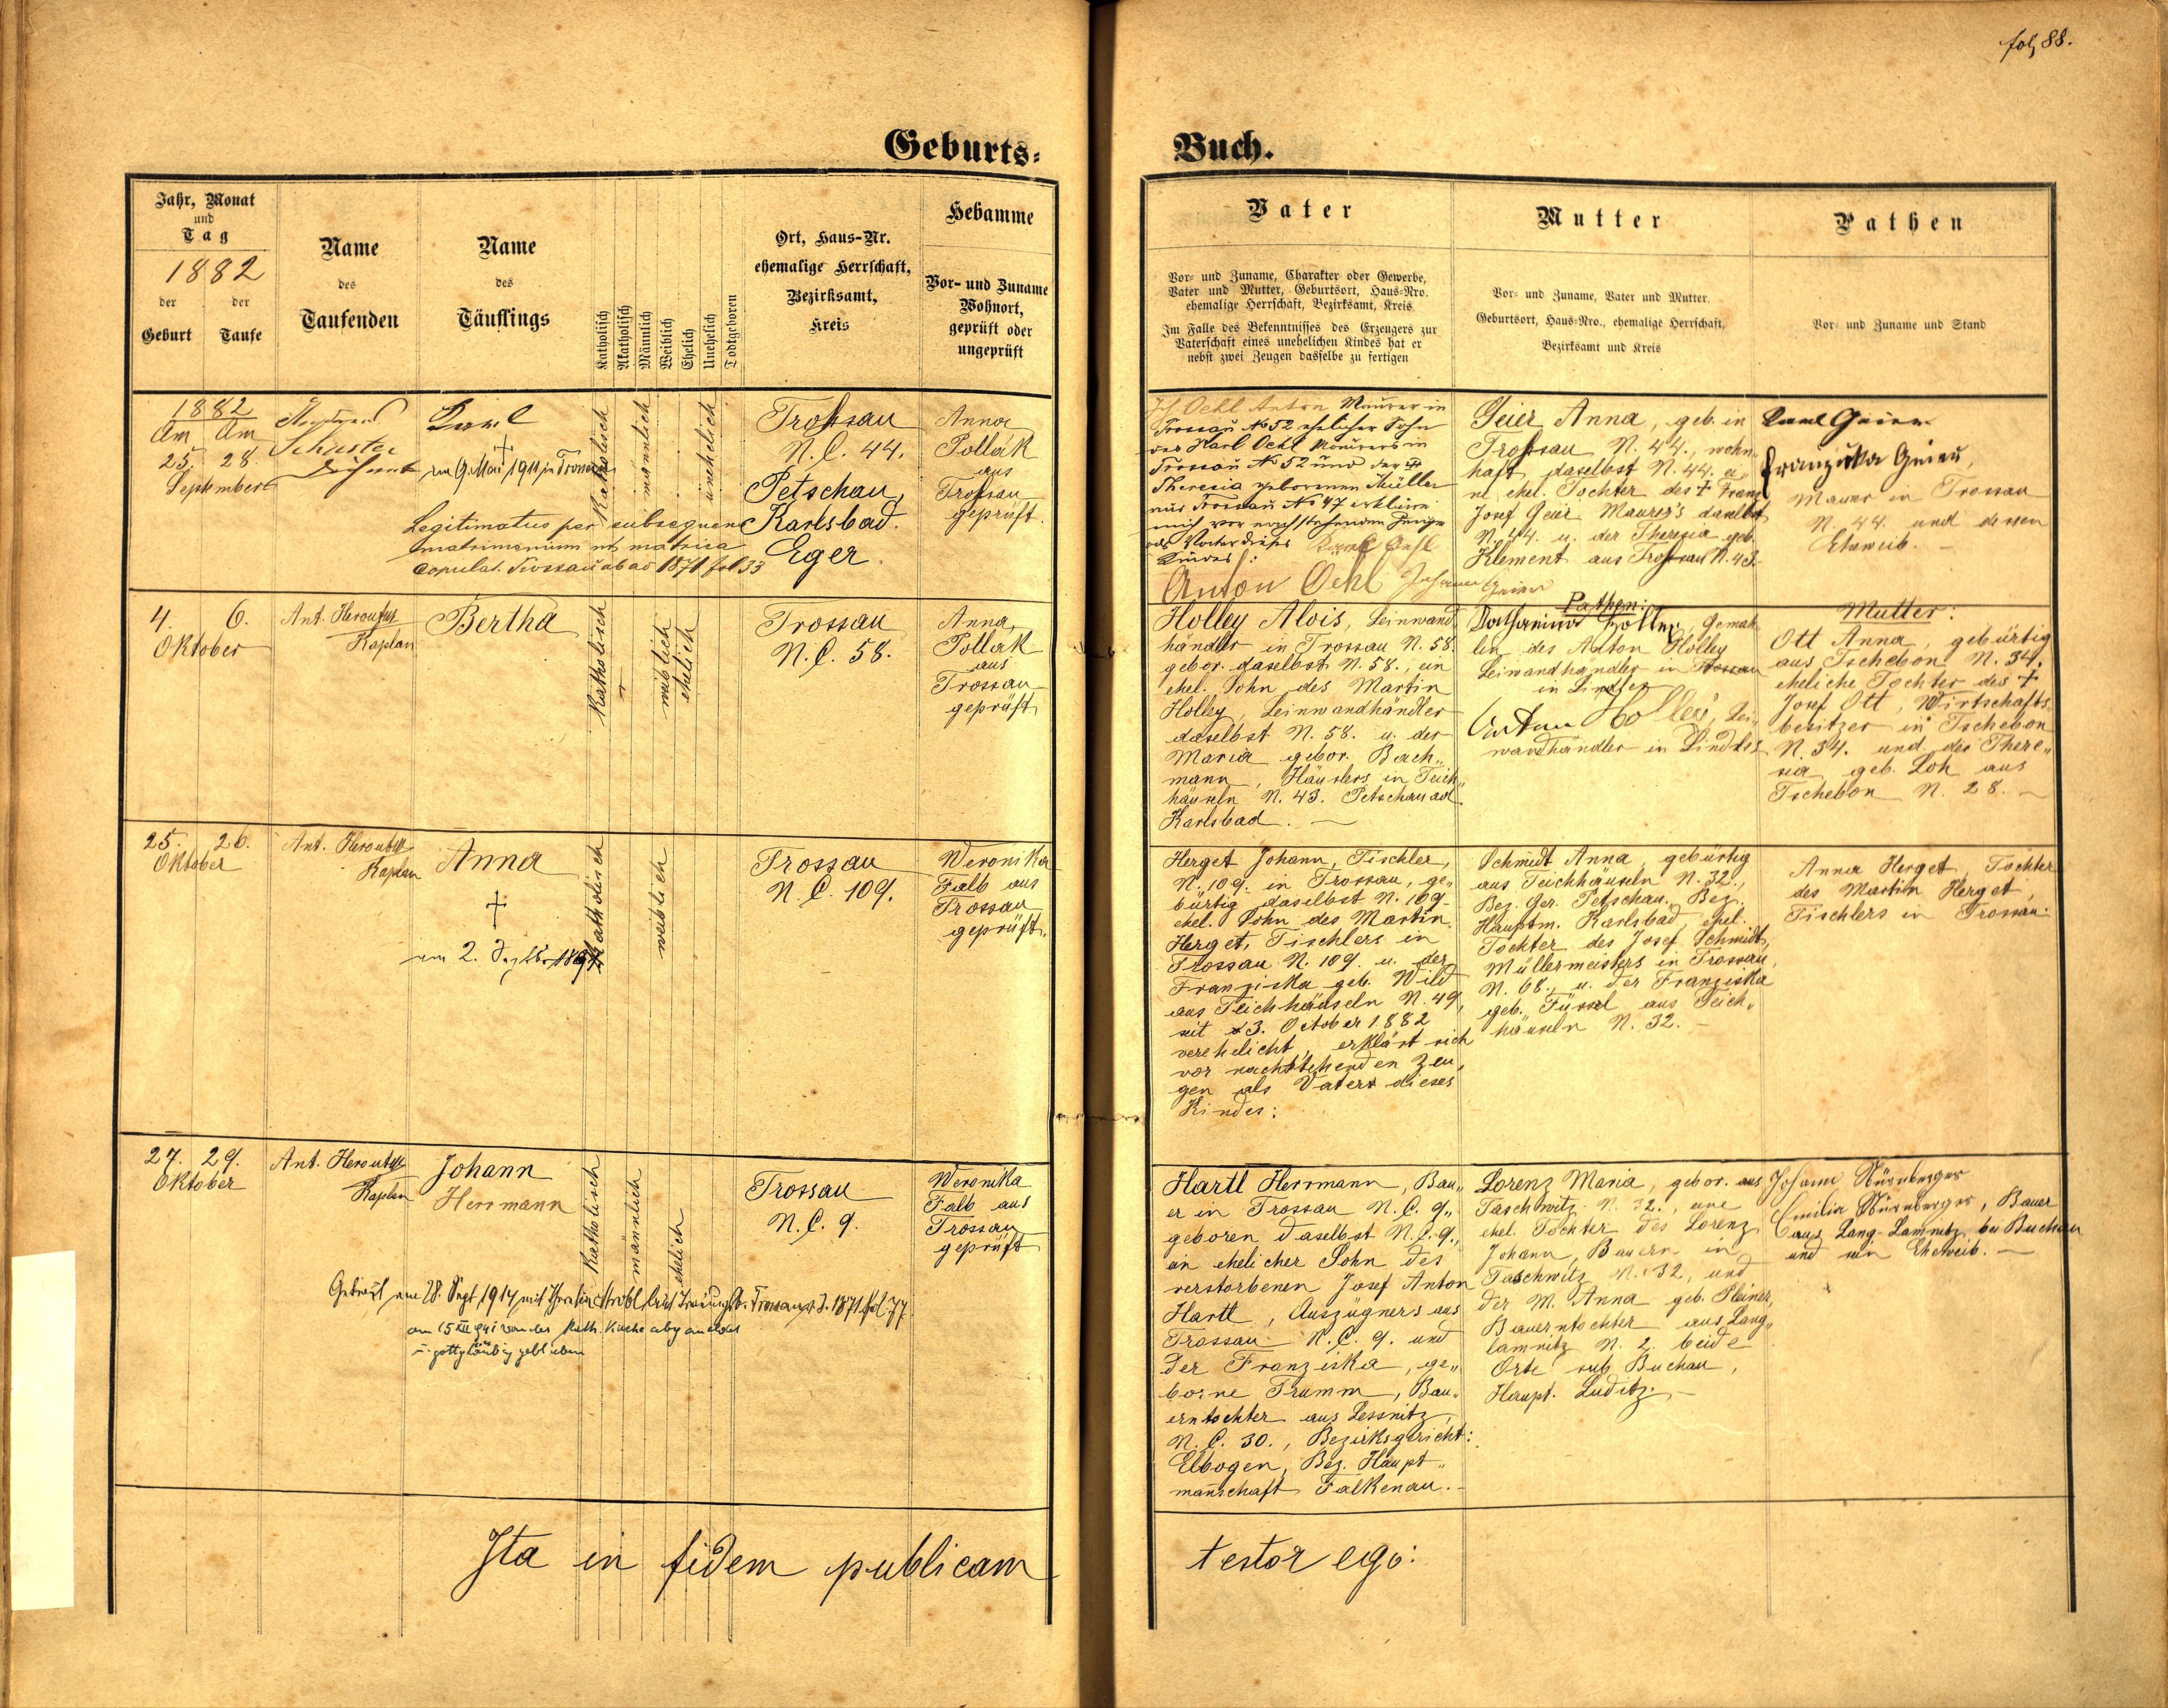 fol. 88.
Geburts=
Buch.
Jahr, Monat
und
Tag
1882
der Geburt
der Taufe
Name
des
Taufenden
Name
des
Täuflings
Katholisch
Akatholisch
Männlich
Weiblich
Ehelich
Unehelich
Todtgeboren
Ort, Haus-Nr.
ehemalige Herrschaft,
Bezirksamt,
Kreis
Hebamme
Vor- und Zuname
Wohnort,
geprüft oder
ungeprüft
Vater
Vor- und Zuname, Charakter oder Gewerbe,
Vater und Mutter, Geburtsort, Haus-Nro.
ehemalige Herrschaft, Bezirksamt, Kreis
Im Falle des Bekenntnisses des Erzeugers zur
Vaterschaft eines unehelichen Kindes hat er
nebst zwei Zeugen dasselbe zu fertigen
Mutter
Vor- und Zuname, Vater und Mutter.
Geburtsort, Haus-Nro., ehemalige Herrschaft,
Bezirksamt und Kreis
Pathen
Vor- und Zuname und Stand
1882
Am Am
25. 28.
September
Schuster
Dechant
Karl
†
am 9. Mai 1911 in Trossau
Legitimatus per subsequens
matrimonium ut matrica
copulat. Trossau ab ao 1871 fol 33
Katholisch
männlich
unehelich
Trossau
N.C. 44.
Petschau,
Karlsbad.
Eger.
Anna
Pollak
aus
Trossau
geprüft.
Ich Oehl Anton Maurer in
Trossau No 52 ehelicher Sohn
des Karl Oehl Maurers in
Trossau No 52 und der
Theresia geborenen Müller
aus Trossau No 47 erkläre
mich vor nachstehenden Zeugen
als Vater dieses
Kindes:
Karl Oehl
Anton Oehl Johann Geier
Geier Anna, geb. in
Trossau N. 44., wohn
haft daselbst N. 44. ei„
ne ehel. Tochter des † Franz
Josef Geier Maurer's daselbst
N. 44. u. der Theresia geb.
Klement aus Trossau N. 43.
Karl Geier
Franziska Geier,
Maurer in Trossau
N. 44. und dessen
Eheweib. –
4. 6.
Oktober
Ant. Heroutys
Kaplan
Bertha
Katholisch
weiblich
ehelich
Trossau
N.C. 58.
Anna
Pollak
aus
Trossau
geprüft
Holley Alois, Leinwand
händler in Trossau N. 58.
gebor. daselbst N. 58., ein
ehel. Sohn des Martin
Holley, Leinwandhändler
daselbst N. 58. u. der
Maria gebor. Bach„
mann, Häuslers in Teich„
häuseln N. 43. Petschau ad
Karlsbad. –
Pathen:
Katharina Holley, Gemah
lin des Anton Holley
Leinwandhändler in Trossau
in Lindles
Anton Holley, Lei„
wandhändler in Lindles
Mutter:
Ott Anna, gebürtig
aus Tschebon N. 34.
eheliche Tochter des †
Josef Ott, Wirtschafts„
besitzer in Tschebon
N. 34. und der There„
sia geb. Loh aus
Tschebon N. 28. –
25. 26.
Oktober
Ant. Heroutys
Kaplan
Anna
†
am 2.
Katholisch
weiblich
Trossau
N.C. 109.
Weronika
Falb aus
Trossau
geprüft.
Herget Johann, Tischler,
N. 109. in Trossau, ge„
bürtig daselbst N. 109
ehel. Sohn des Martin
Herget, Tischlers in
Trossau N. 109. u. der
Franziska geb. Wild
aus Teichhäuseln N. 49,
seit 3. October 1882
verehelicht, erklärt sich
vor nachstehenden Zeu„
gen als Vater dieses
Kindes:
Schmidt Anna, gebürtig
aus Teichhäuseln N. 32.,
Bez. Ger. Petschau, Bez.
Hauptm. Karlsbad, ehel.
Tochter des Josef Schmidt,
Müllermeisters in Trossau,
N. 68., u. der Franziska
geb. Füssel aus Teich„
häuseln N. 32. –
Anna Herget, Tochter
des Martin Herget,
Tischlers in Trossau.
27. 29.
Oktober
Ant. Heroutys
Kaplan
Johann
Herrmann
Katholisch
männlich
ehelich
Trossau
N.C. 9.
Weronika
Falb aus
Trossau
geprüft
Getraut am 28. Sept. 1914 mit Theresia Strobl laut Trauungsb. Trossau v. J. 1871 fol 77
am 15 XII 941 von der kath. Kirche abgemeldet
u. gottgläubig geblieben
Hartl Herrmann, Bau„
er in Trossau N.C. 9.„
geboren daselbst N.C. 9.,
ein ehelicher Sohn des
verstorbenen Josef Anton
Hartl, Auszügners aus
Trossau N.C. 9. und
der Franziska, ge„
borne Trumm, Bau„
erntochter aus Lessnitz,
N.C. 30., Bezirksgericht:
Elbogen, Bez. Haupt„
mannschaft Falkenau. –
Lorenz Maria, gebor. aus
Taschwitz N. 32., eine
ehel. Tochter des Lorenz
Johann, Bauern in
Taschwitz N. 32, und
der M. Anna geb. Pleiner,
Bauerntochter aus Lang„
lamnitz N. 2. beide
Orte sub Buchau,
Haupt. Luditz. –
Johann Nürnberger
Emilia Nürnberger, Bauer
aus Lang-Lamnitz, bei Buchau
und sein Eheweib. –
Ita in fidem publicam
testor ego: